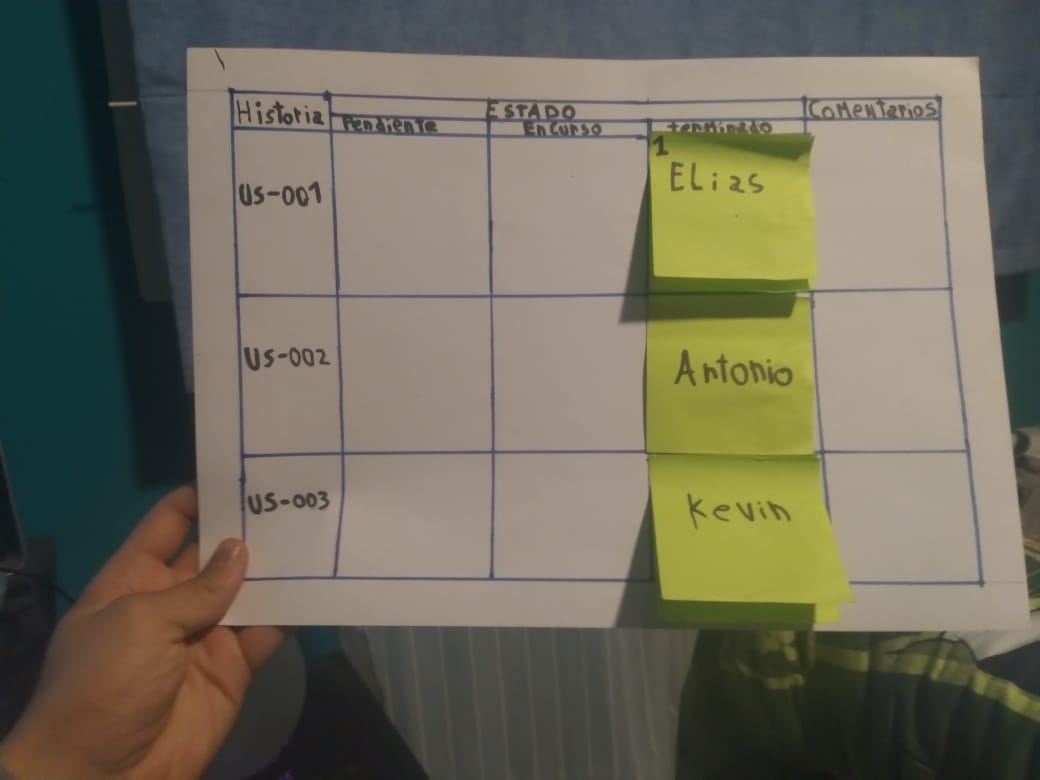 Historia
ESTADO
Comentarios
Pendiente
En Curso
terminado
US-001
1
ELias
US-002
Antonio
US-003
Kevin